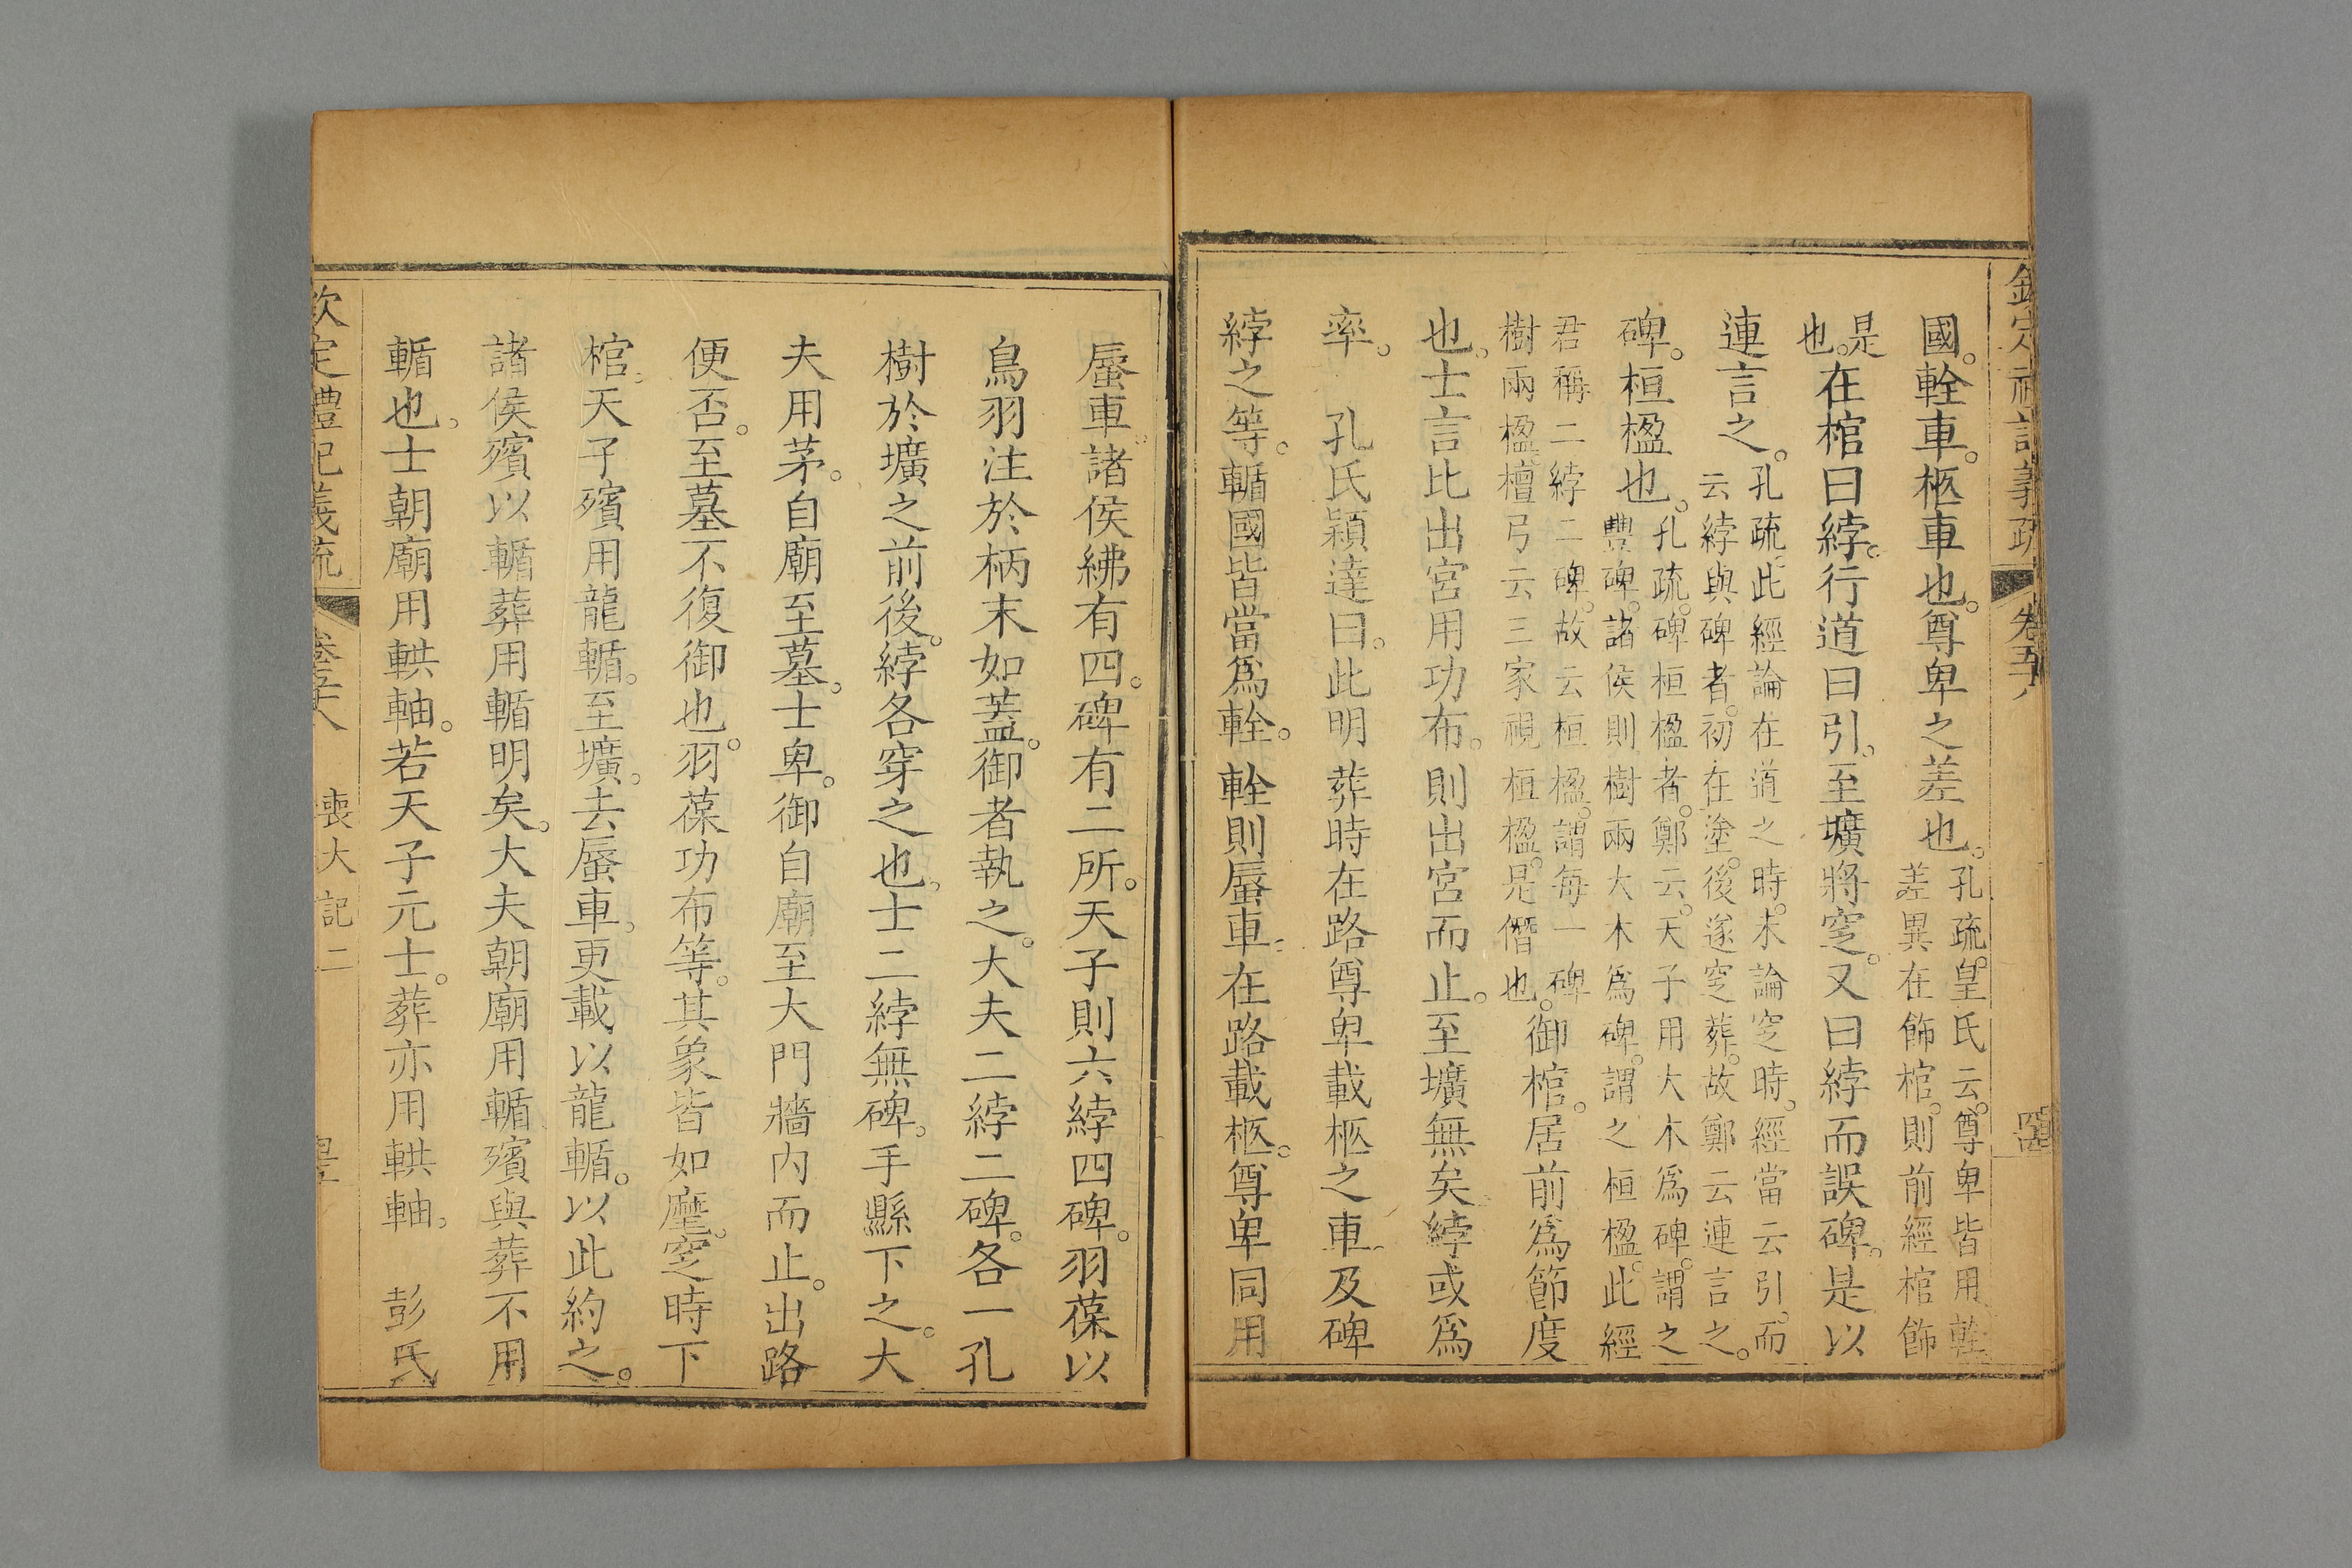 欽定禮記義疏 卷五十八
國。輇車。柩車也。尊卑之差也。孔疏。皇氏云。尊卑皆用輇差異在飾棺。則前經棺飾
是也。在棺曰綍。行道曰引。至壙將窆。又曰綍而誤碑。是以
連言之。孔疏。此經論在道之時。未論窆時。經當云引。而云綍與碑者。初在塗。後遂窆葬。故鄭云連言之。
碑。桓楹也。孔疏。碑桓楹者。鄭云。天子用大木爲碑。謂之豐碑。諸侯則樹兩大木爲碑。謂之桓楹。此經
君稱二綍二碑。故云桓楹。謂每一碑樹兩楹。檀弓云三家視桓楹。是僭也。御棺。居前爲節度
也。士言比出宮用功布。則出宮而止。至壙無矣。綍或爲
率。 孔氏穎達曰。此明葬時在路尊卑載柩之車。及碑
綍之等。輴國皆當爲輇。輇則蜃車。在路載柩。尊卑同用
蜃車。諸侯紼有四。碑有二所。天子則六綍四碑。羽葆以
鳥羽注於柄末如蓋。御者執之。大夫二綍二碑。各一孔
樹於壙之前後。綍各穿之也。士二綍無碑。手縣下之。大
夫用茅。自廟至墓。士卑。御自廟至大門牆內而止。出路
便否。至墓不復御也。羽葆功布等。其象皆如麾。窆時下
棺。天子殯用龍輴。至壙。去蜃車。更載以龍輴。以此約之。
諸侯殯以輴葬用輴明矣。大夫朝廟用輴殯與葬不用
輴也。士朝廟用輁軸。若天子元士。葬亦用輁軸。 彭氏
欽定禮記義疏 卷五十八 喪大記二